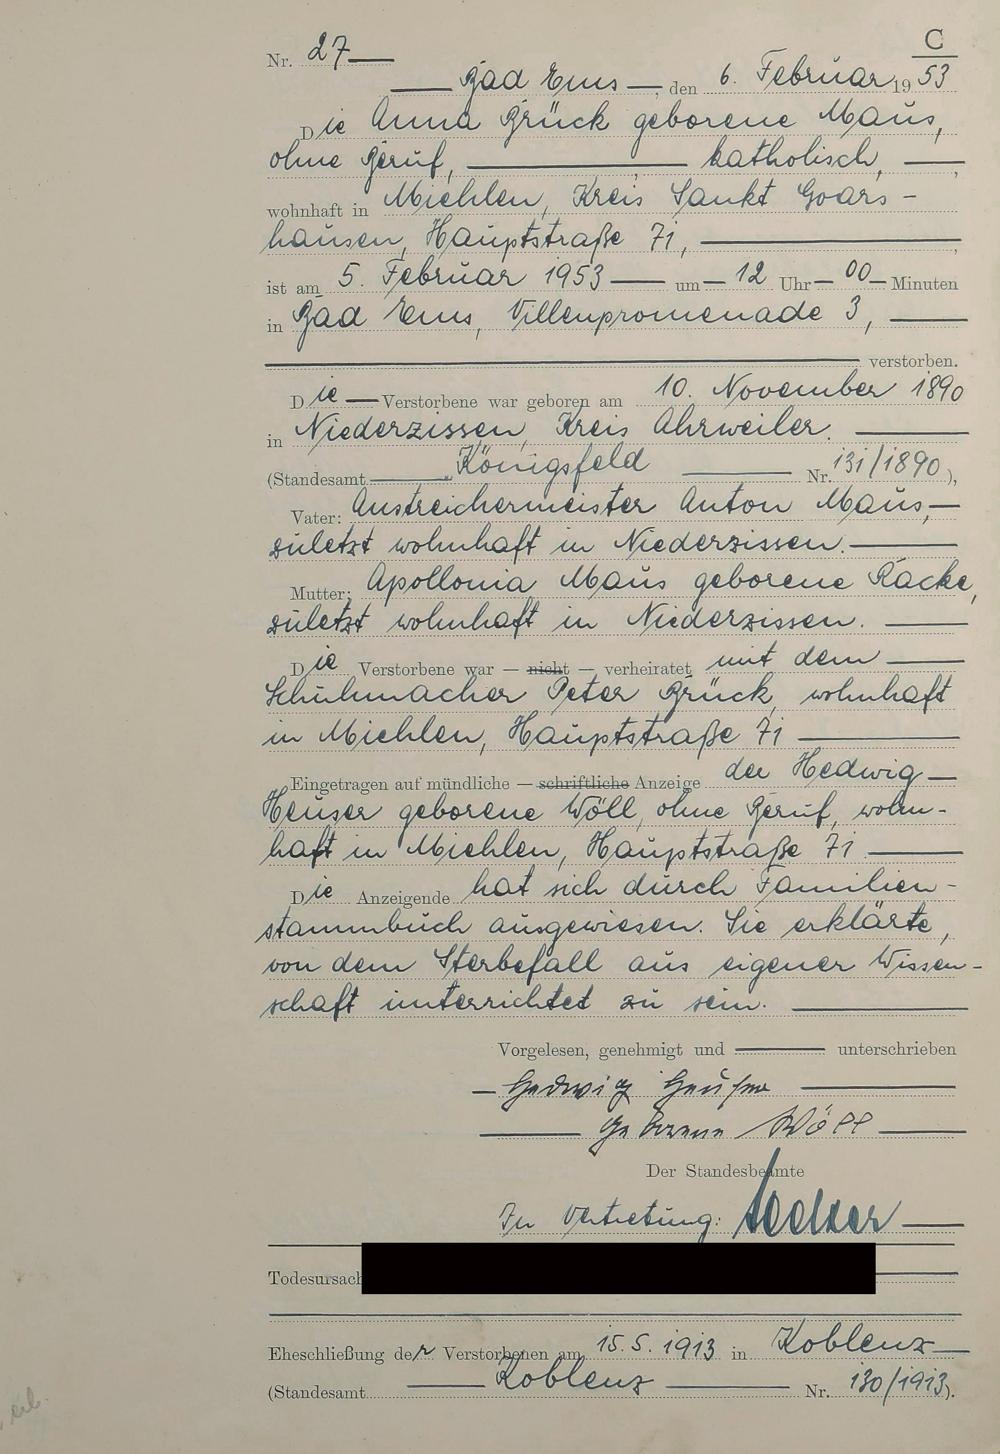 C
Nr. 27
Bad Ems, den 6. Februar 1953
Die Anna Brück geborene Maus,
ohne Beruf, katholisch,
wohnhaft in Miehlen, Kreis Sankt Goars-
hausen, Hauptstraße 71,
ist am 5. Februar 1953 um 12 Uhr 00 Minuten
in Bad Ems, Villenpromenade 3,
verstorben.
Die Verstorbene war geboren am 10. November 1890
in Niederzissen, Kreis Ahrweiler.
(Standesamt Königsfeld Nr. 131/1890),
Vater: Anstreichermeister Anton Maus,
zuletzt wohnhaft in Niederzissen.
Mutter: Apollonia Maus geborene Racke,
zuletzt wohnhaft in Niederzissen.
Die Verstorbene war — nicht — verheiratet mit dem
Schuhmacher Peter Brück, wohnhaft
in Miehlen, Hauptstraße 71
Eingetragen auf mündliche — schriftliche Anzeige der Hedwig
Heuser geborene Wöll, ohne Beruf, wohn-
haft in Miehlen, Hauptstraße 71
Die Anzeigende hat sich durch Familien-
stammbuch ausgewiesen. Sie erklärte,
von dem Sterbefall aus eigener Wissen-
schaft unterrichtet zu sein.
Vorgelesen, genehmigt und unterschrieben
Hedwig Heuser
geborene Wöll
Der Standesbeamte
In Vertretung:
Todesursach
Eheschließung der Verstorbenen am 15.5.1913 in Koblenz
(Standesamt Koblenz Nr. 130/1913).